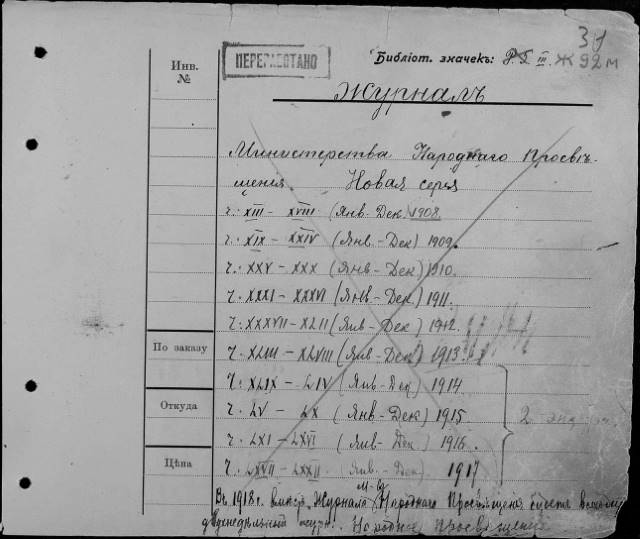 31
ПЕРЕРАБОТАНО
Библіот. значекъ: III. Ж 92 м
Инв. №
Журналъ
Министерства Народнаго Просвѣ-
щенія. Новая серія
ч. XIII - XVIII (Янв. Дек.) 1908.
ч. XIX - XXIV (Янв - Дек) 1909.
ч. XXV - XXX (Янв - Дек) 1910.
ч. XXXI - XXXVI (Янв - Дек.) 1911.
ч. XXXVII - XLII (Янв - Дек) 1912.
По заказу
ч. XLIII - XLVIII (Янв - Дек) 1913
ч. XLIX - LIV (Янв - Дек) 1914
Откуда
ч. LV - LX (Янв - Дек) 1915 2
ч. LXI - LXVI (Янв - Дек) 1916.
Цѣна
ч. LXVII - LXXII (Янв - Дек). 1917
Въ 1918 г. вмѣсто Журнала М-ва Народнаго Просвѣщенія
двухнедѣльный Народное Просвѣщеніе